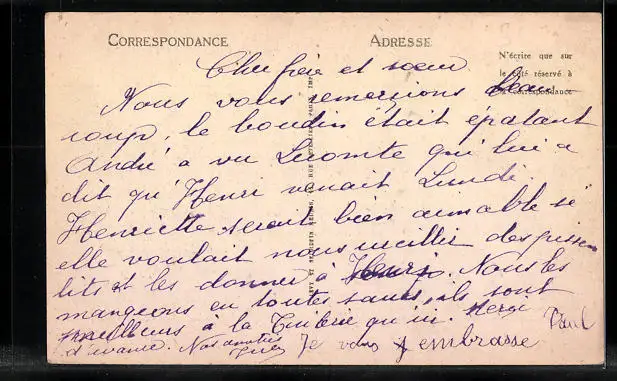 CORRESPONDANCE
ADRESSE
N'écrire que sur
le côté réservé à
la correspondance
Cher frère et sœur
Nous vous remersions beau
coup, le boudin était épatant
André a vu Lecomte qui lui a
dit qu'Henri venait Lundi.
Henriette serait bien aimable si
elle voulait nous cueillir des pissen
lits et les donner à Henri. Nous les
mangeons en toutes sauces, ils sont
meilleurs à la qu'ici. Mergi
d'avance. Nos amitiés
Je vous embrasse
Paul